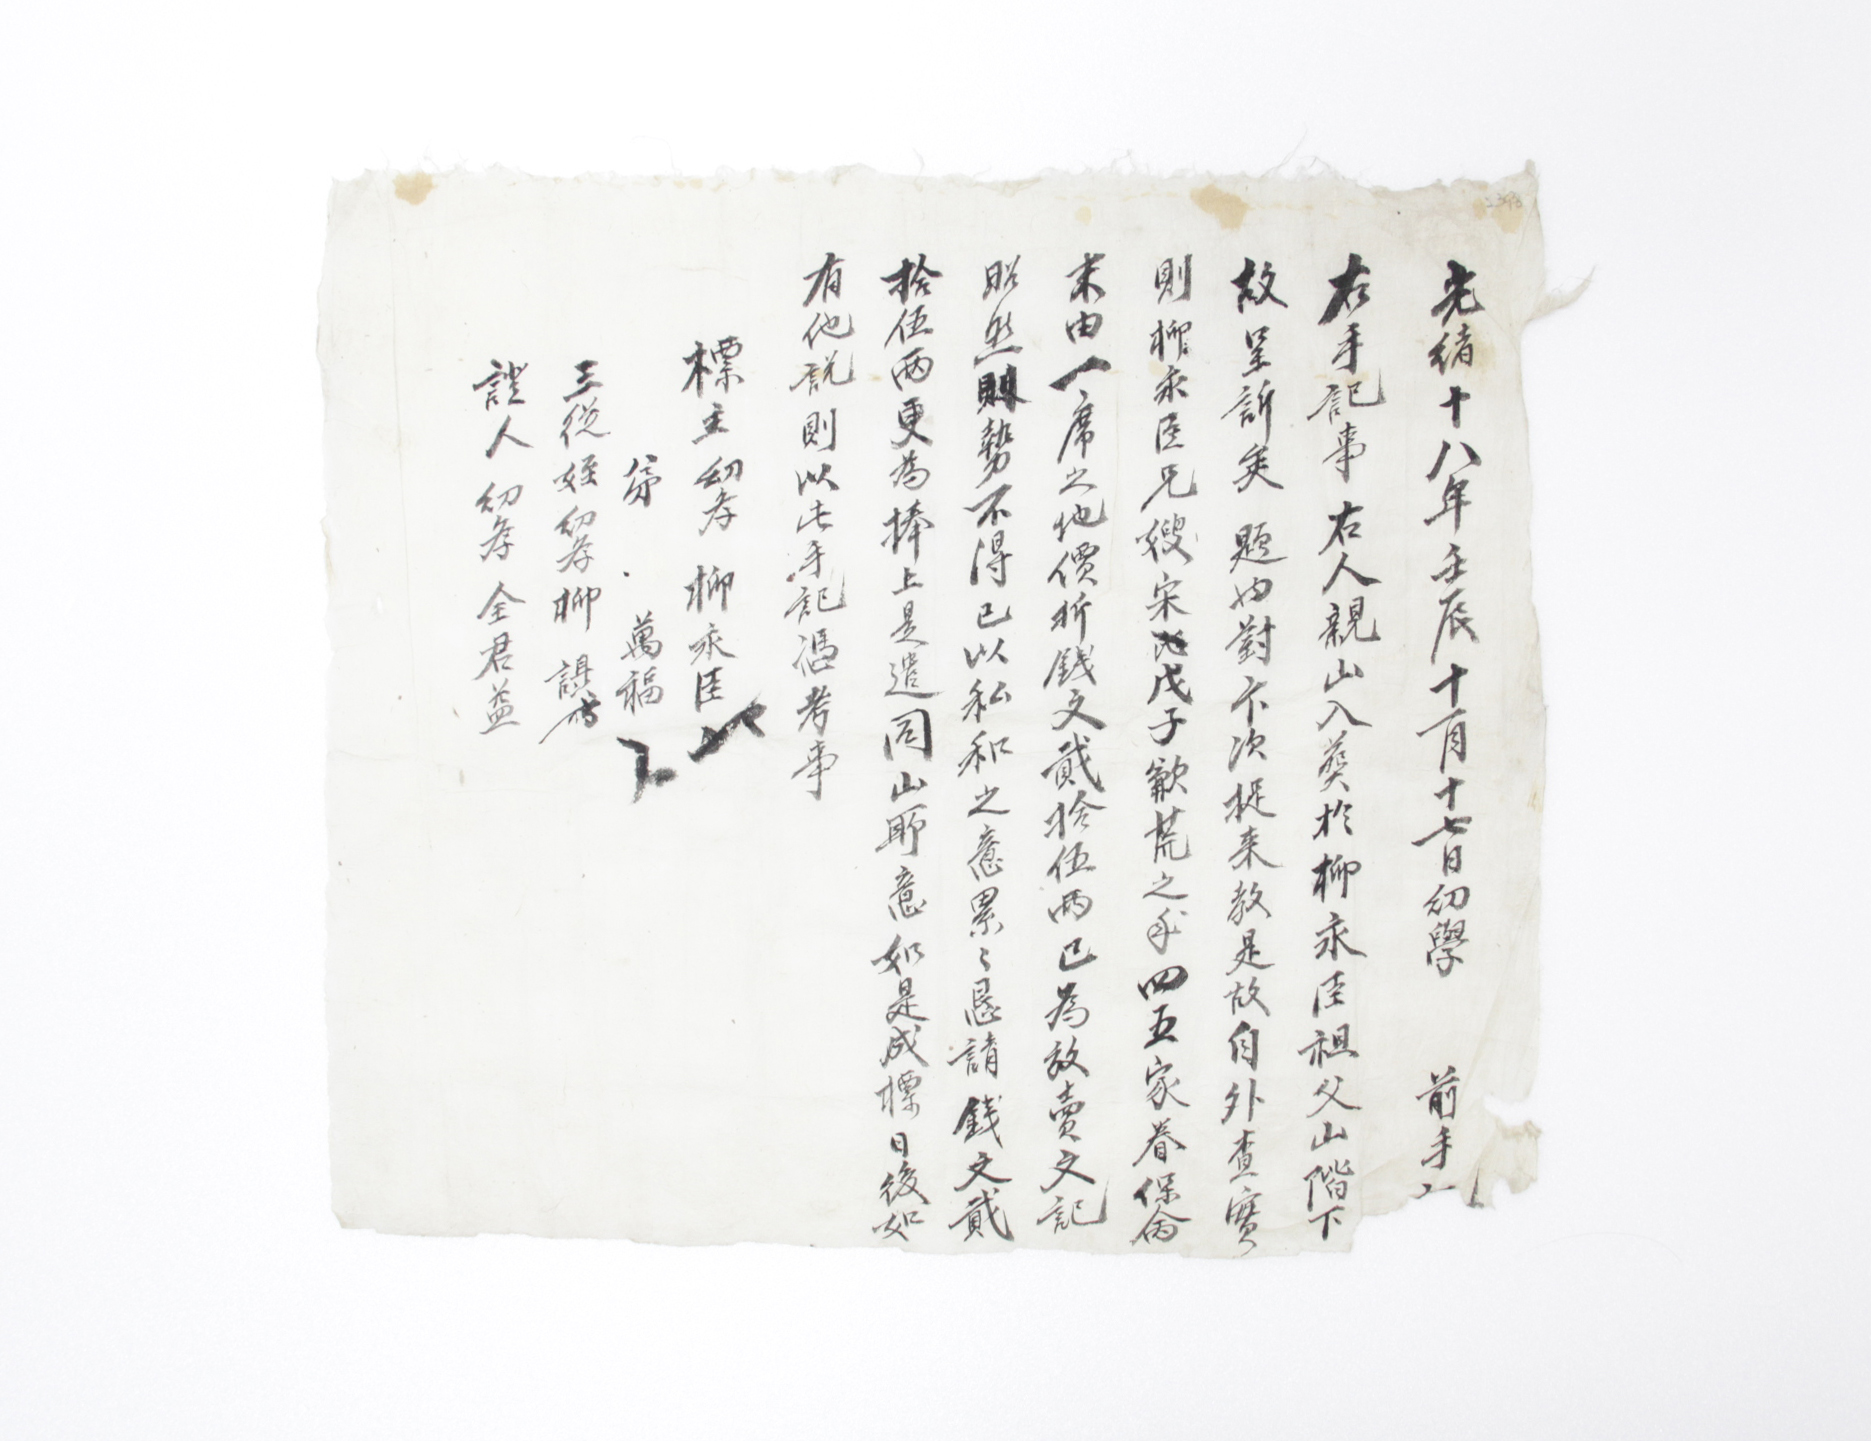 光緒十八年壬辰十一月十七日幼學 前手
右手記事右人親山入葬於柳永臣祖父山階下
故呈訴矣題內對卞次捉來教是故自外查實
則柳永臣兄嫂宋氏戊子歉荒之年四五家眷保命
末由一席之地價折錢文貳拾伍兩已為放賣文記
昭然勢不得已以私和之意累〻懇請錢文貳
拾伍兩更為捧上是遣同山所意如是成標日後如
有他說則以此手記憑考事
標主幼學柳永臣
弟 萬福
三從姪幼學柳
證人幼學全君益